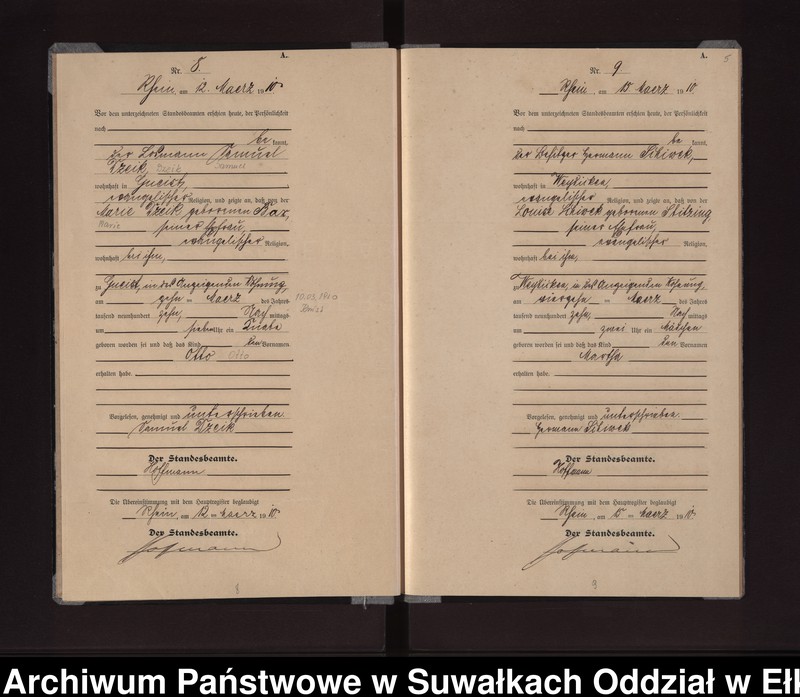 A.
Nr. 8.
Rhein, am 12. Maerz 1910.
Vor dem unterzeichneten Standesbeamten erschien heute, der Persönlichkeit
nach
be kannt,
der Losmann Samuel
Dzeik,
wohnhaft in Gneist,
evangelischer Religion, und zeigte an, daß von der
Marie Dzeik geborenen Bax,
Marie
seiner Ehefrau,
evangelischer Religion,
wohnhaft bei ihm,
zu Gneist, in des Anzeigenden Wohnung,
am zehn = Maerz des Jahres
10.03.1910
tausend neunhundert zehn, Nach mittags
um sieben Uhr ein Knabe
geboren worden sei und daß das Kind den Vornamen
Otto Otto
erhalten habe.
Vorgelesen, genehmigt und unterschrieben
Samuel Dzeik
Der Standesbeamte.
Hoffmann
Die Übereinstimmung mit dem Hauptregister beglaubigt
Rhein, am 12 = Maerz 1910.
Der Standesbeamte.
Hofmann
8
A.
5
Nr. 9
Rhein, am 15. Maerz 1910.
Vor dem unterzeichneten Standesbeamten erschien heute, der Persönlichkeit
nach
be kannt,
der Besitzer Hermann
wohnhaft in
evangelischer Religion, und zeigte an, daß von der
Louise geborenen
seiner Ehefrau,
evangelischer Religion,
wohnhaft bei ihm,
zu in des Anzeigenden Wohnung,
am vierzehn = Maerz des Jahres
tausend neunhundert zehn, Nach mittags
um zwei Uhr ein Mädchen
geboren worden sei und daß das Kind den Vornamen
Martha
erhalten habe.
Vorgelesen, genehmigt und unterschrieben.
Hermann
Der Standesbeamte.
Hoffmann
Die Übereinstimmung mit dem Hauptregister beglaubigt
Rhein, am 15 = Maerz 1910.
Der Standesbeamte.
Hofmann
9
Archiwum Państwowe w Suwałkach Oddział w Eł